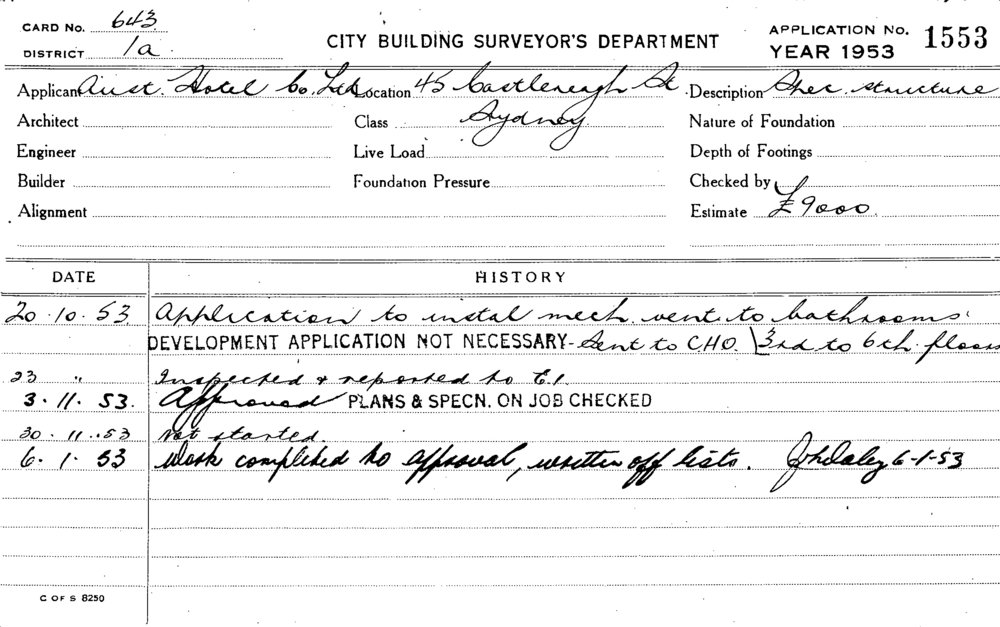 CARD No. 643
DISTRICT 1a
CITY BUILDING SURVEYOR'S DEPARTMENT
APPLICATION No. 1553
YEAR 1953
Applicant Aust. Hotel Co. Ltd Location 45 Castlereagh St Description structure
Architect Class Sydney Nature of Foundation
Engineer Live Load Depth of Footings
Builder Foundation Pressure Checked by
Alignment Estimate £9000
DATE HISTORY
20.10.53 Application to instal mech. vent. to bathrooms.
DEVELOPMENT APPLICATION NOT NECESSARY - Sent to C.H.O. 3rd to 6th floors
23 " Inspected & reported to E.I.
3.11.53. Approved PLANS & SPECN. ON JOB CHECKED
30.11.53 Not started.
6.1.53 Work completed to approval, written off lists. 6-1-53
C OF S 8250